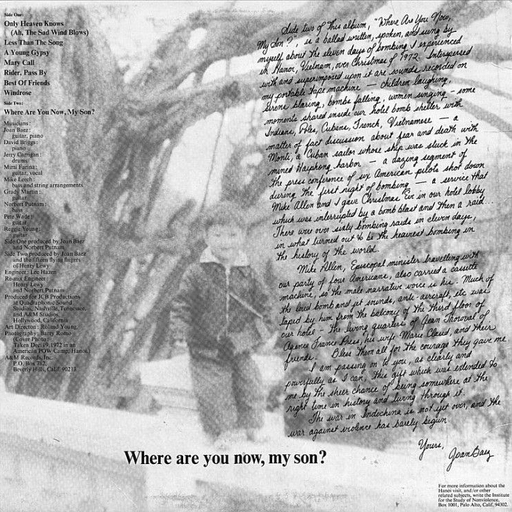 Side One:
Only Heaven Knows
(Ah, The Sad Wind Blows)
Less Than The Song
A Young Gypsy
Mary Call
Rider, Pass By
Best Of Friends
Windrose
Side Two:
Where Are You Now, My Son?
Musicians
Joan Baez
guitar, piano
David Briggs
piano
Jerry Carrigan
drums
Mimi Farina
guitar, vocal
Mike Leech
bass and string arrangements
Grady Martin
guitar
Norbert Putnam
bass
Pete Wade
guitar
Reggie Young
guitar
Side One produced by Joan Baez
and Norbert Putnam
Side Two produced by Joan Baez
of Henry Lewy
Engineer: Lee Hazen
Remix Engineer
Henry Lewy
and Norbert Putnam
Produced for JCB Productions
at Quadrafonic Sound
Studios, Nashville, Tennessee,
and A&M Studios,
Hollywood, California
Art Director: Roland Young
Photography:
(Cover Photo)
Taken Dec. 19, 1972 in an
American POW Camp, Hanoi
A&M Records, Inc.
P.O. Box 782
Beverly Hills, Calif. 90213
Side two of this album, "Where Are You Now,
My Son?", is a ballad written, spoken, and sung by
myself about the eleven days of bombing I experienced
in Hanoi, Vietnam, over Christmas of 1972. Interspersed
with and superimposed upon it are sounds recorded on
my portable tape machine — children laughing,
sirens blaring, bombs falling, women singing — some
moments shared inside our hotel bomb shelter with
Indians, Poles, Cubans, French, Vietnamese — a
matter of fact discussion about fear and death with
Monti, a Cuban sailor whose ship was stuck in the
mined Haiphong harbor — a dazing segment of
the press conference of six American pilots shot down
during the first night of bombing — a service that
Mike Allen and I gave Christmas Eve in our hotel lobby
which was interrupted by a bomb blast and then a raid.
There were over sixty bombing raids in eleven days,
in what turned out to be the heaviest bombing in
the history of the world.
Mike Allen, Episcopal minister travelling with
our party of four Americans, also carried a cassette
machine, so the male narrative voice is his. Much of
the best bomb and jet sounds, anti-aircraft, etc. was
taped by him from the balcony of the third floor of
our hotel - the living quarters of Jean Thoraval of
Agence France Press, his wife Marie Claud, and their
friends. Bless them all for the courage they gave me
I am passing on to you, as clearly and
powerfully as I can, this gift which was extended to
me by the sheer chance of being somewhere at the
right time in history and living through it.
The war in Indochina is not yet over, and the
war against violence has barely begun.
Yours,
Joan Baez
Where are you now, my son?
For more information about the
Hanoi visit, and/or other
related subjects, write the Institute
for the Study of Nonviolence,
Box 1001, Palo Alto, Calif. 94302.